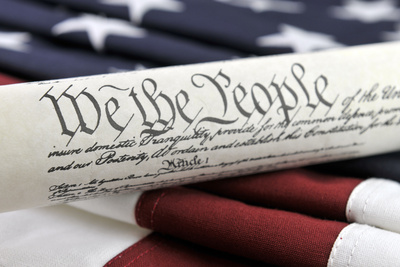 We the People of the Un
insure domestic Tranquility, provide for the common defence, promo
and our Posterity, do ordain and establish this Constitution for the
Article. I